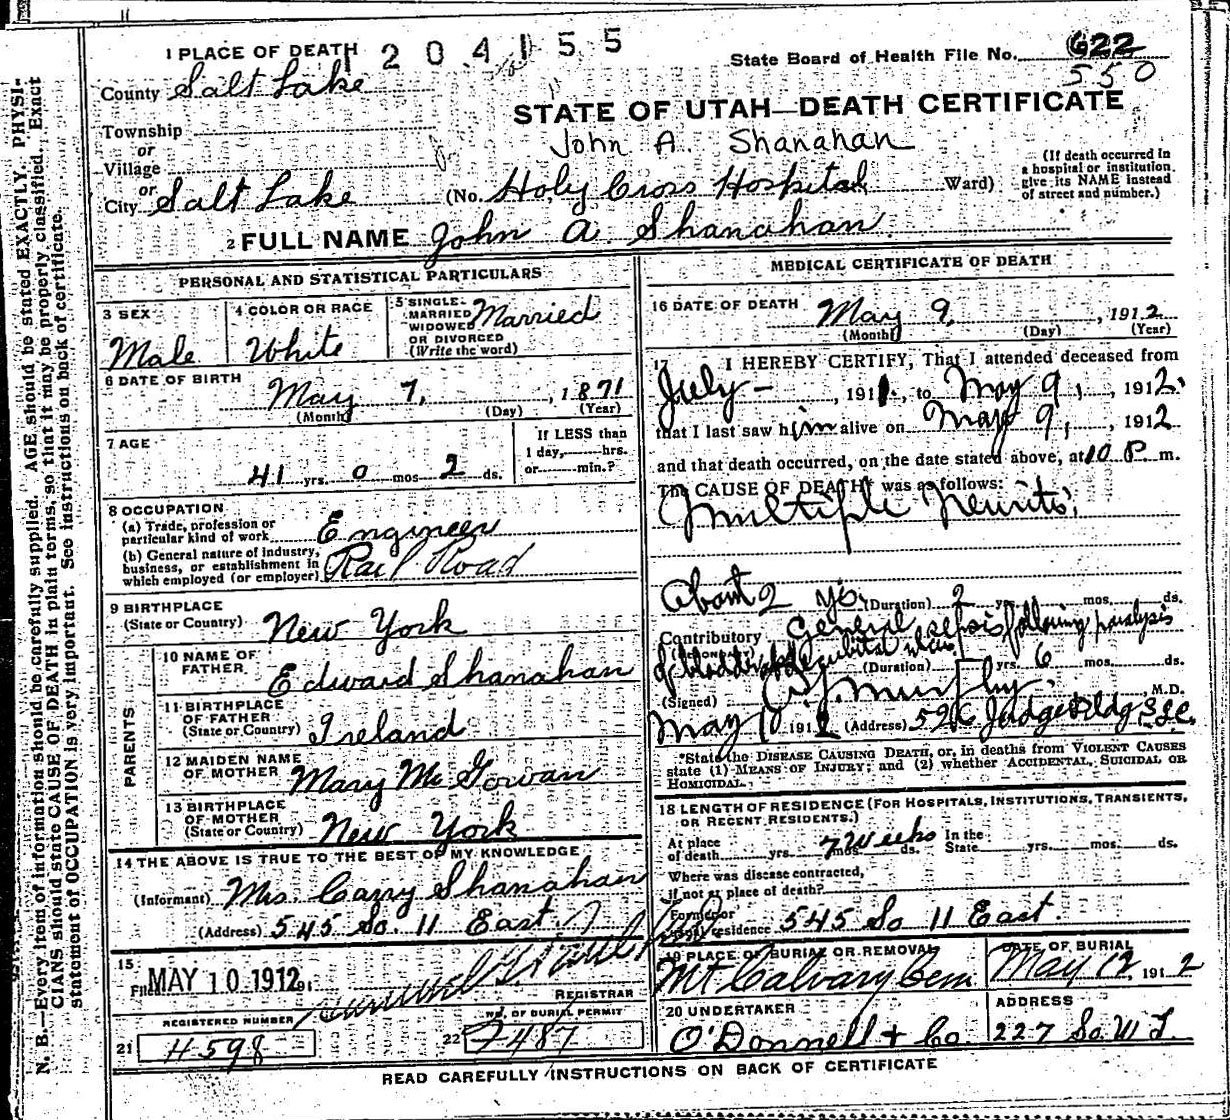 1 PLACE OF DEATH
2 0 4 1 5 5
State Board of Health File No. 622
550
County Salt Lake
STATE OF UTAH—DEATH CERTIFICATE
Township
John A. Shanahan
or
Village
or
City Salt Lake
(No. Holy Cross Hospital Ward)
(If death occurred in
a hospital or institution
give its NAME instead
of street and number.)
2 FULL NAME John A Shanahan.
PERSONAL AND STATISTICAL PARTICULARS
3 SEX
Male
4 COLOR OR RACE
White
5 SINGLE
MARRIED
WIDOWED
OR DIVORCED
(Write the word)
Married
6 DATE OF BIRTH
May 7, , 1871
(Month) (Day) (Year)
7 AGE
41 yrs. 0 mos 2 ds.
If LESS than
1 day, hrs.
or min.?
8 OCCUPATION
(a) Trade, profession or
particular kind of work Engineer
(b) General nature of industry,
business, or establishment in
which employed (or employer) Rail Road
9 BIRTHPLACE
(State or Country) New York
PARENTS
10 NAME OF
FATHER Edward Shanahan
11 BIRTHPLACE
OF FATHER
(State or Country) Ireland
12 MAIDEN NAME
OF MOTHER Mary McGowan
13 BIRTHPLACE
OF MOTHER
(State or Country) New York
14 THE ABOVE IS TRUE TO THE BEST OF MY KNOWLEDGE
(Informant) Mrs. Carry Shanahan
(Address) 545 So. 11 East.
15
Filed MAY 10 1912 191
REGISTRAR
REGISTERED NUMBER
21 4598
NO. OF BURIAL PERMIT
22 7487
MEDICAL CERTIFICATE OF DEATH
16 DATE OF DEATH
May 9, , 1912
(Month) (Day) (Year)
17 I HEREBY CERTIFY, That I attended deceased from
July - , 1911, to May 9, , 1912.
that I last saw him alive on May 9, , 1912
and that death occurred, on the date stated above, at 10 P m.
The CAUSE OF DEATH* was as follows:
Multiple Neuritis
About 2 yrs. (Duration) 2 yrs. mos. ds.
Contributory General sepsis following paralysis
(SECONDARY)
of bladder & decubital ulcers
(Duration) yrs. 6 mos. ds.
(Signed) Murphy, M.D.
May 10 1912 (Address) 526 Judge Bldg S.L.C.
*State the DISEASE CAUSING DEATH, or, in deaths from VIOLENT CAUSES
state (1) MEANS OF INJURY; and (2) whether ACCIDENTAL, SUICIDAL OR
HOMICIDAL.
18 LENGTH OF RESIDENCE (FOR HOSPITALS, INSTITUTIONS, TRANSIENTS,
OR RECENT RESIDENTS.)
At place
of death yrs. 7 mos. Weeks ds. In the
State yrs. mos. ds.
Where was disease contracted,
if not at place of death?
Former or
usual residence 545 So 11 East.
19 PLACE OF BURIAL OR REMOVAL
Mt Calvary Cem
DATE OF BURIAL
May 12 1912
20 UNDERTAKER
O'Donnell & Co.
ADDRESS
227 So. W T.
READ CAREFULLY INSTRUCTIONS ON BACK OF CERTIFICATE
N. B.—Every item of information should be carefully supplied. AGE should be stated EXACTLY. PHYSI-
CIANS should state CAUSE OF DEATH in plain terms, so that it may be properly classified. Exact
statement of OCCUPATION is very important. See instructions on back of certificate.